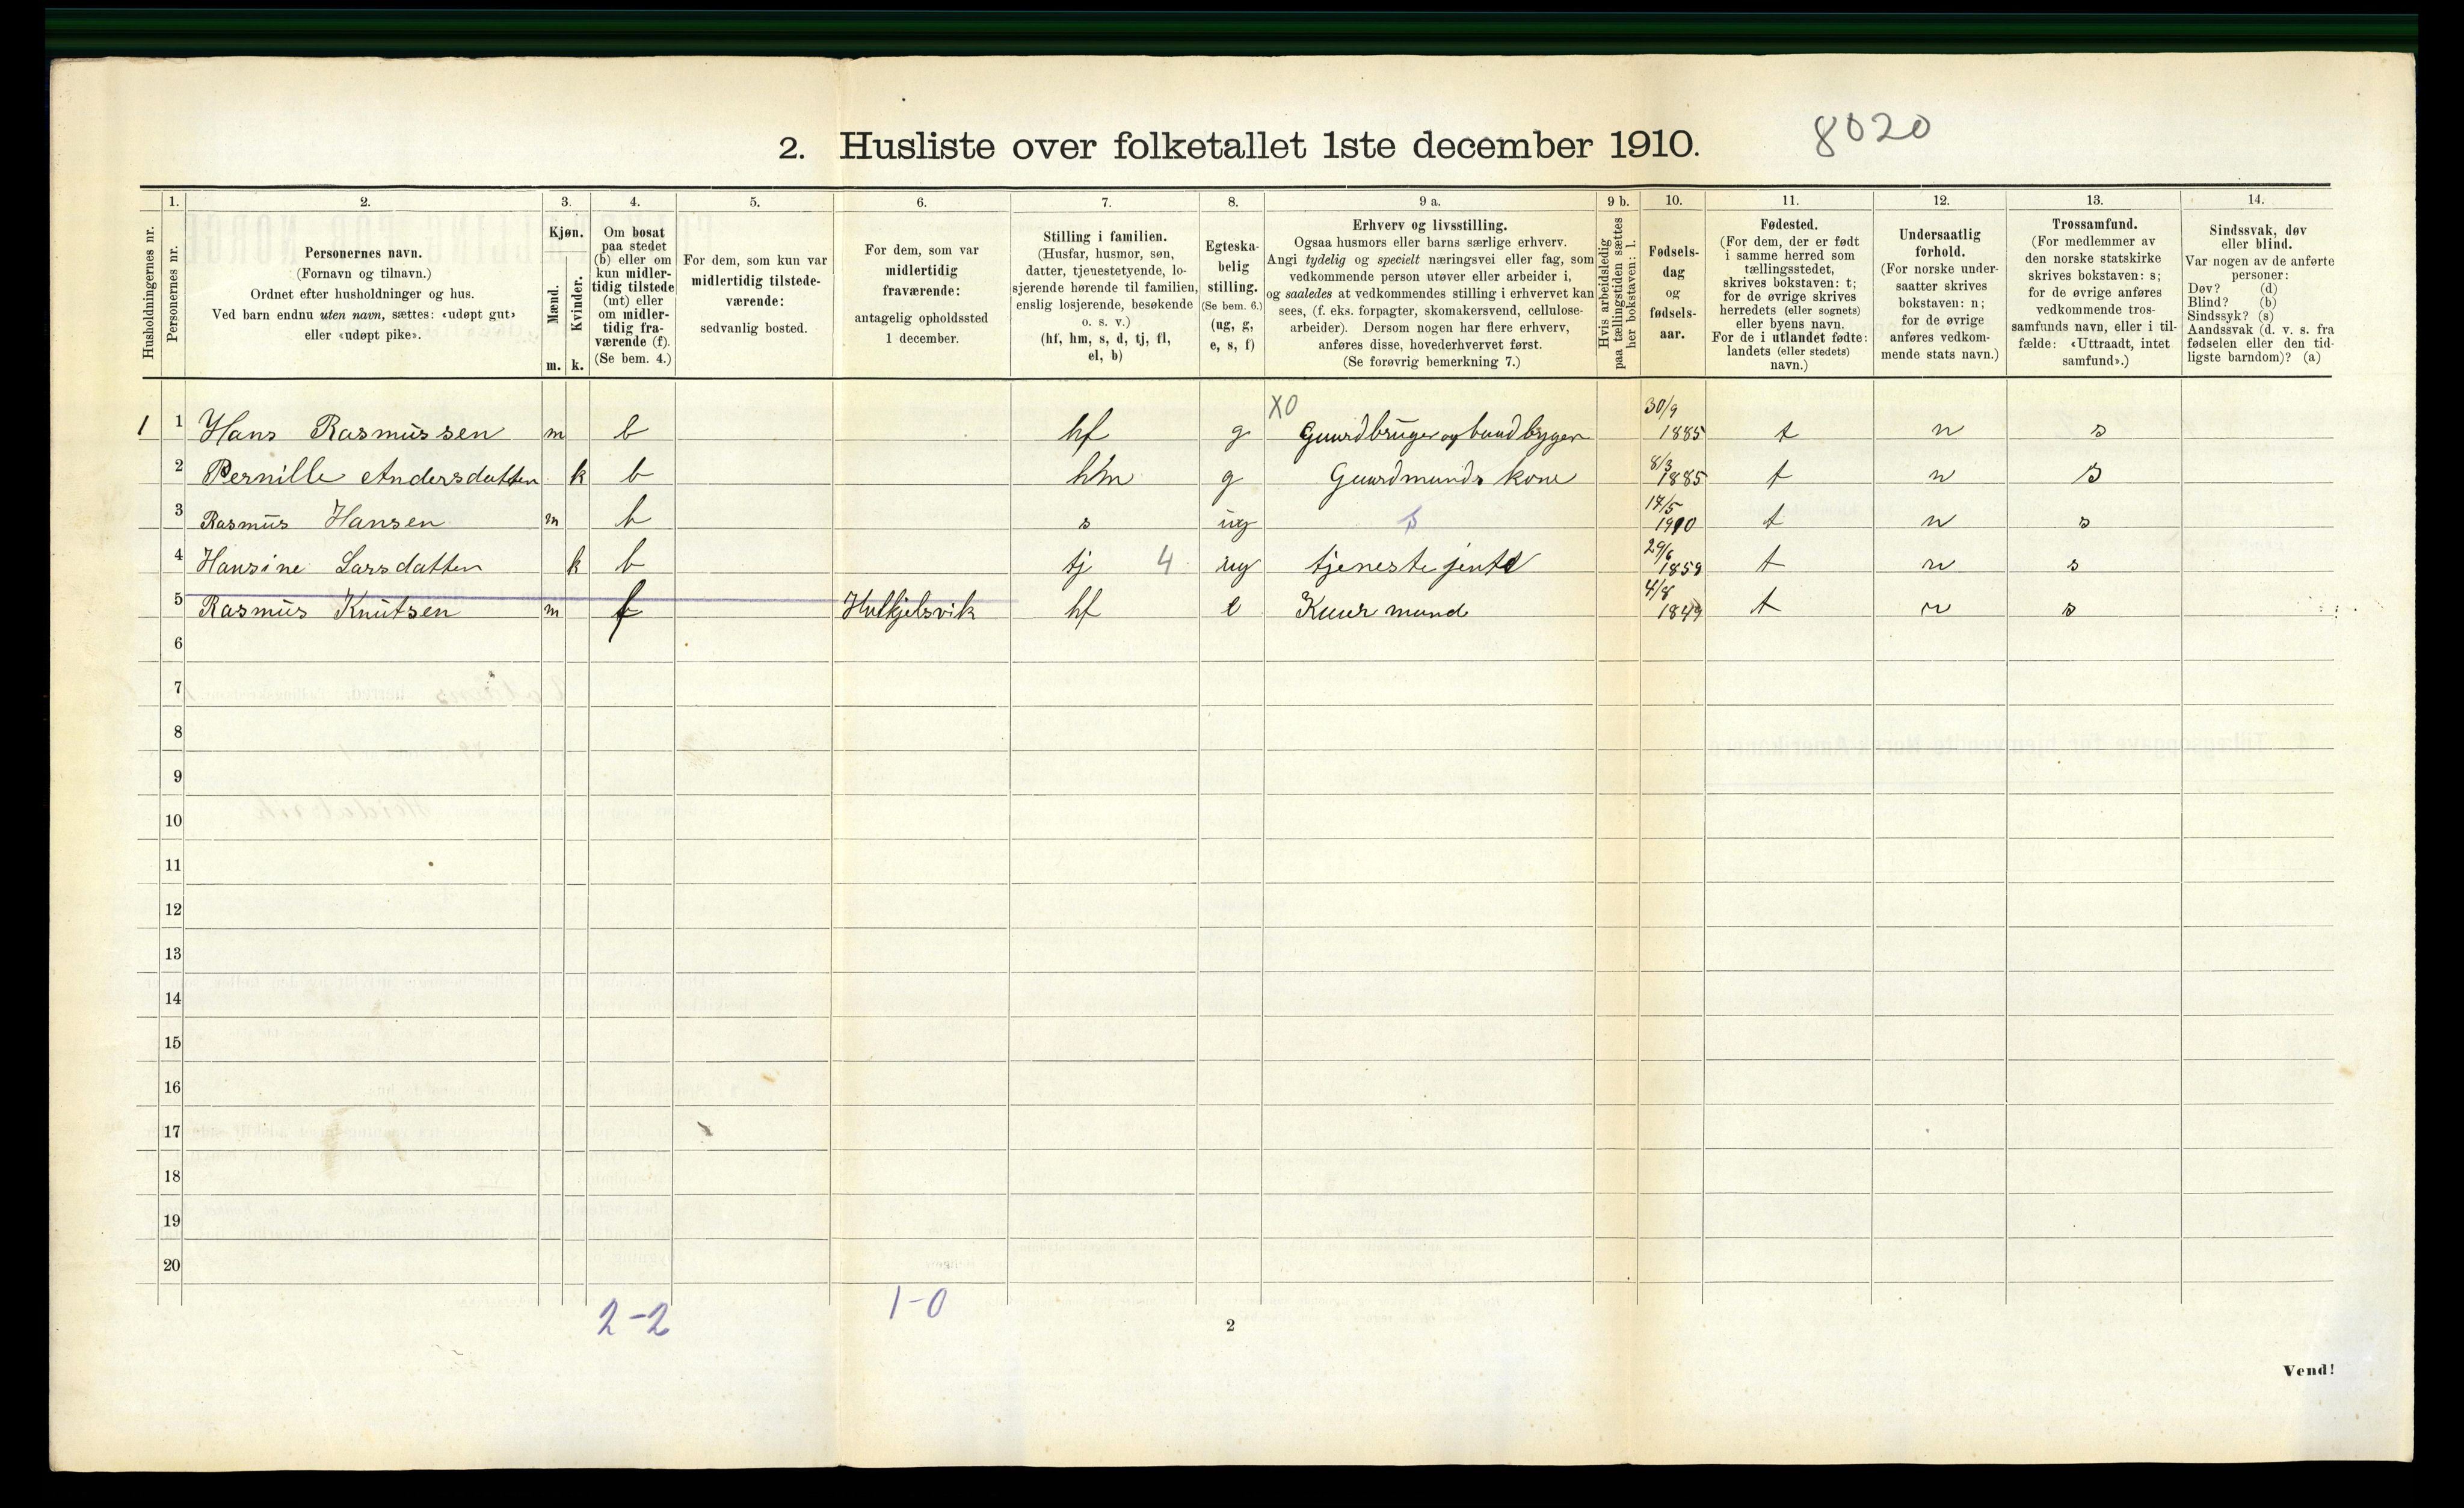 2. Husliste over folketallet 1ste december 1910.
8020
Husholdningernes nr.
1.
Personernes nr.
2.
Personernes navn.
(Fornavn og tilnavn.)
Ordnet efter husholdninger og hus.
Ved barn endnu uten navn, sættes: «udøpt gut»
eller «udøpt pike».
3.
Kjøn.
Mænd.
Kvinder.
m. k.
4.
Om bosat
paa stedet
(b) eller om
kun midler-
tidig tilstede
(mt) eller
om midler-
tidig fra-
værende (f).
(Se bem. 4.)
5.
For dem, som kun var
midlertidig tilstede-
værende:
sedvanlig bosted.
6.
For dem, som var
midlertidig
fraværende:
antagelig opholdssted
1 december.
7.
Stilling i familien.
(Husfar, husmor, søn,
datter, tjenestetyende, lo-
sjerende hørende til familien,
enslig losjerende, besøkende
o. s. v.)
(hf, hm, s, d, tj, fl,
el, b)
8.
Egteska-
belig
stilling.
(Se bem. 6.)
(ug, g,
e, s, f)
9 a.
Erhverv og livsstilling.
Ogsaa husmors eller barns særlige erhverv.
Angi tydelig og specielt næringsvei eller fag, som
vedkommende person utøver eller arbeider i,
og saaledes at vedkommendes stilling i erhvervet kan
sees, (f. eks. forpagter, skomakersvend, cellulose-
arbeider). Dersom nogen har flere erhverv,
anføres disse, hovederhvervet først.
(Se forøvrig bemerkning 7.)
9 b.
Hvis arbeidsledig
paa tællingstiden sættes
her bokstaven: l.
10.
Fødsels-
dag
og
fødsels-
aar.
11.
Fødested.
(For dem, der er født
i samme herred som
tællingsstedet,
skrives bokstaven: t;
for de øvrige skrives
herredets (eller sognets)
eller byens navn.
For de i utlandet fødte:
landets (eller stedets)
navn.)
12.
Undersaatlig
forhold.
(For norske under-
saatter skrives
bokstaven: n;
for de øvrige
anføres vedkom-
mende stats navn.)
13.
Trossamfund.
(For medlemmer av
den norske statskirke
skrives bokstaven: s;
for de øvrige anføres
vedkommende tros-
samfunds navn, eller i til-
fælde: «Uttraadt, intet
samfund».)
14.
Sindssvak, døv
eller blind.
Var nogen av de anførte
personer:
Døv? (d)
Blind? (b)
Sindssyk? (s)
Aandssvak (d. v. s. fra
fødselen eller den tid-
ligste barndom)? (a)
1 1 Hans Rasmussen m b hf g X0 Gaardbruger og baadbygger 30/9 1885 t n s
2 Pernille Andersdatter k b hm g Gaardmands kone 8/3 1885 t n s
3 Rasmus Hansen m b s ug s 17/5 1910 t n s
4 Hansine Larsdatter k b tj 4 ug tjeneste jente 29/6 1859 t n s
5 Rasmus Knutsen m f hf e Kaarmand 4/8 1849 t n s
6
7
8
9
10
11
12
13
14
15
16
17
18
19
20
2-2
1-0
2
Vend!